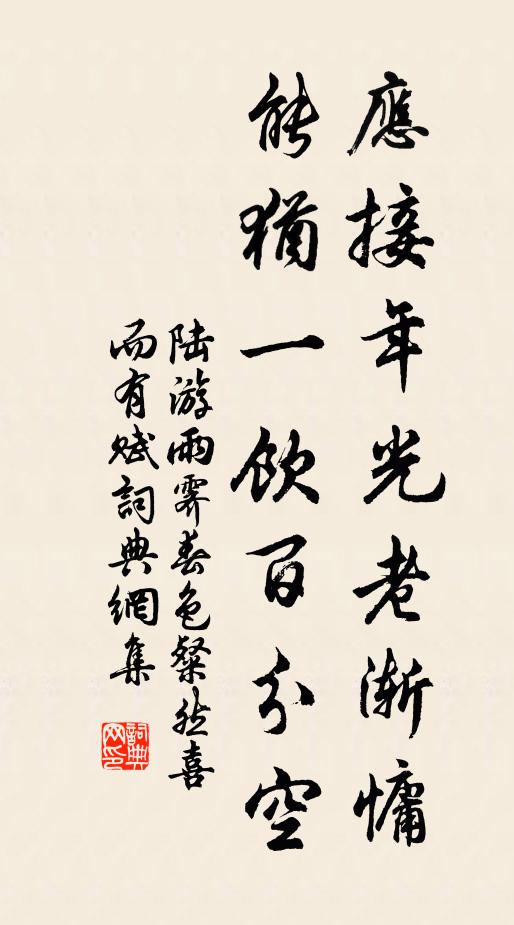 應接年光老漸慵
能猶一飲百分空
陆游雨霽春色粲然喜
而有賦詞典網集
詞典网印